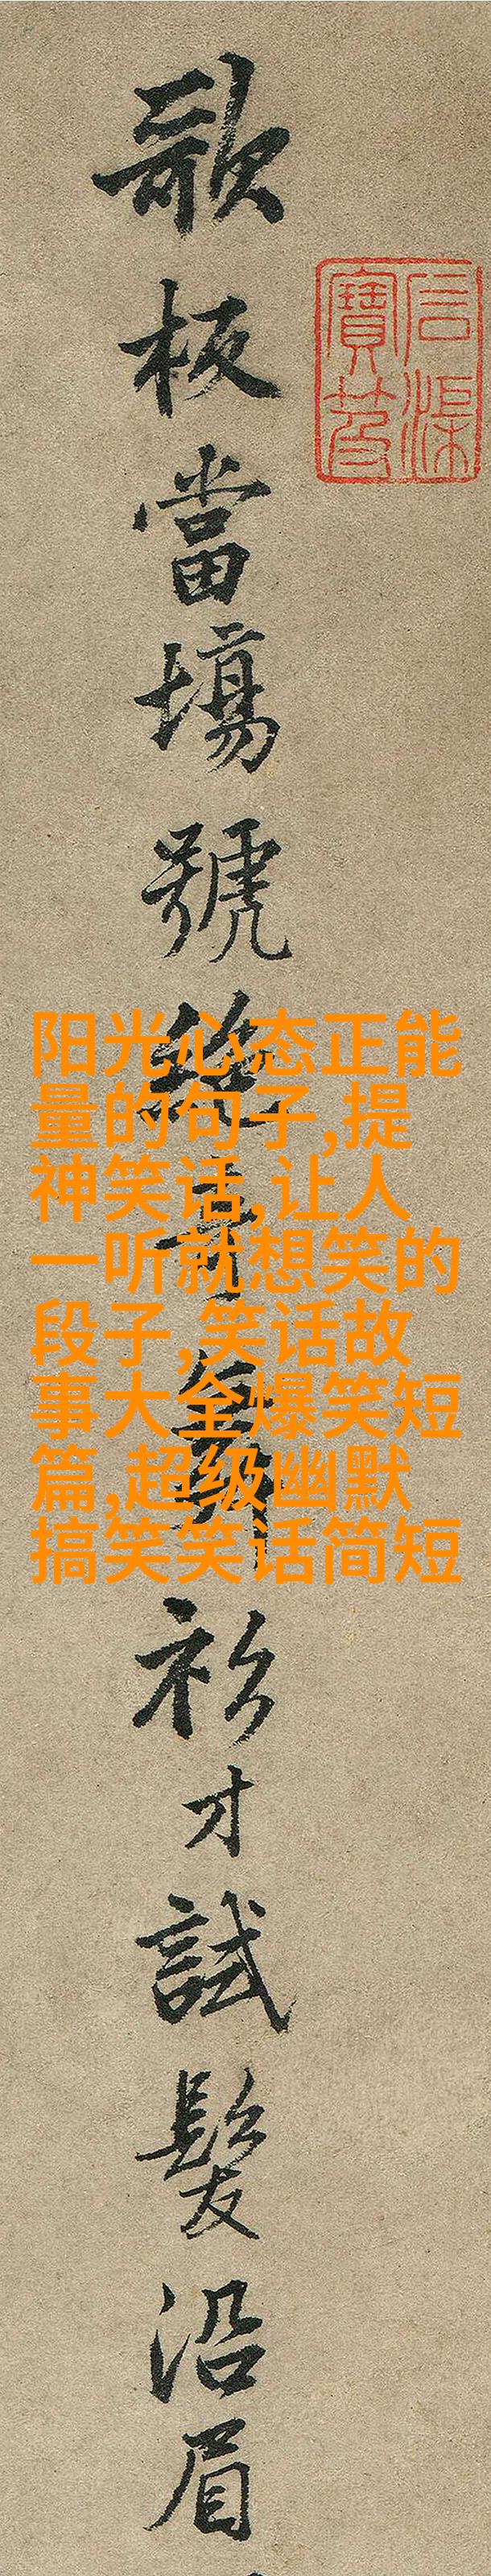 歌板當場號絕奇舞衫才試髮沿眉
石渠
寶笈
阳光心态正能
量的句子,提
神笑话,让人
一听就想笑的
段子,笑话故
事大全爆笑短
篇,超级幽默
搞笑笑话简短